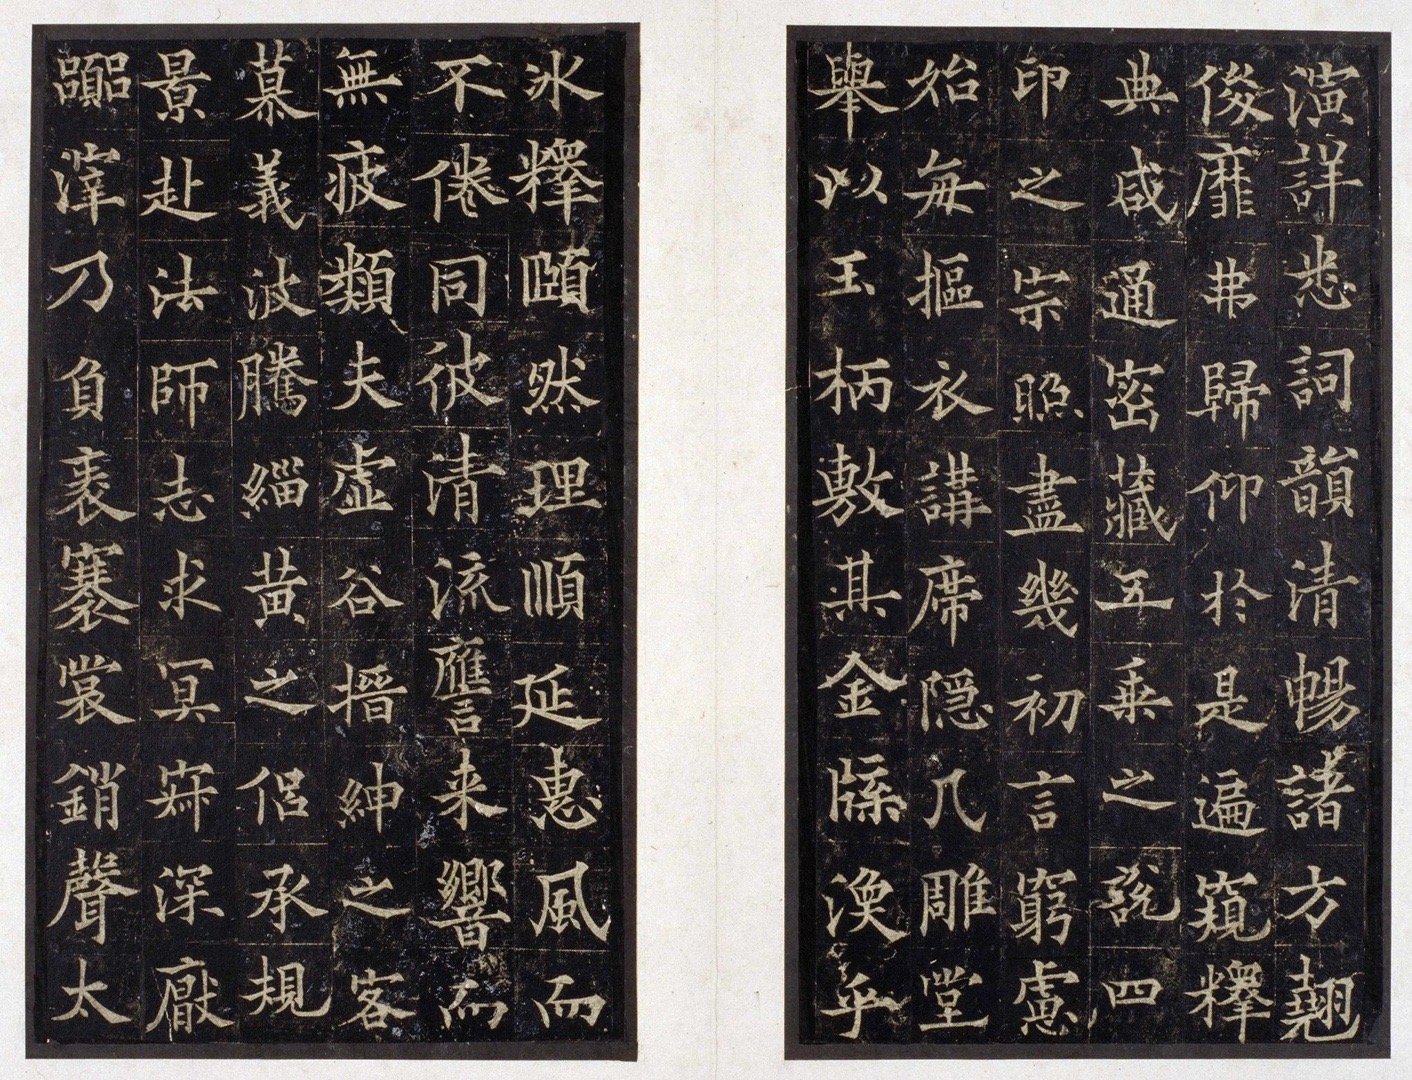 演詳悉詞韻清暢諸方翹
俊靡弗歸仰於是遍窺釋
典咸通密藏五乘之說四
印之宗照盡幾初言窮慮
始每摳衣講席隐几雕堂
舉以玉柄敷其金牒渙乎
冰釋頤然理順延惠風而
不倦同彼清流應来響而
無疲類夫虚谷搢紳之客
慕義波騰緇黄之侣承規
景赴法師志求冥寂深厭
囂滓乃負袠褰裳銷聲太